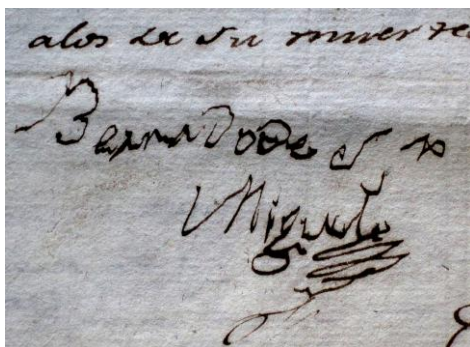 alos de su muerte
Bernardo de Sn
Miguel